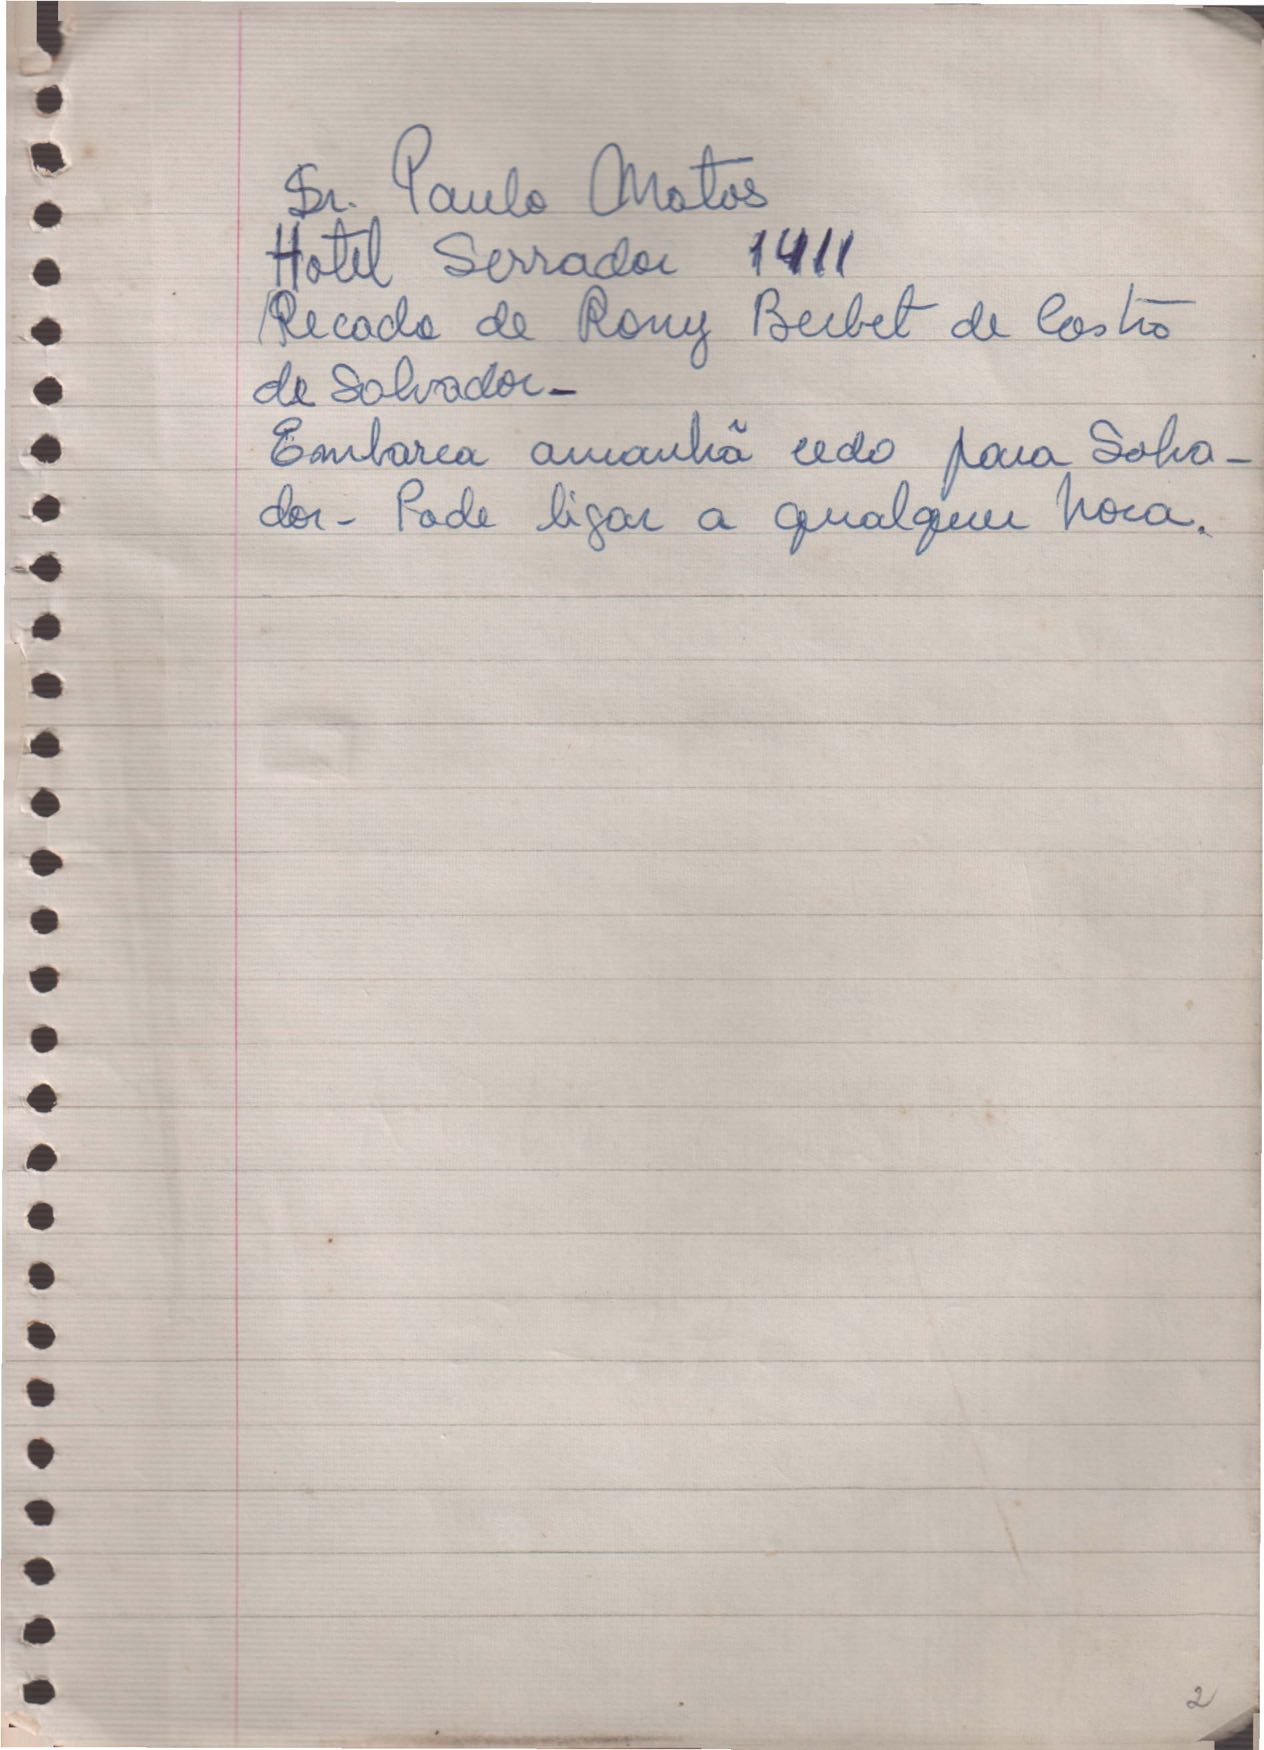 Sr. Paulo Matos
Hotel Serrador 1411
Recado de Rony Berbet de Castro
de Salvador -
Embarca amanhã cedo para Salva -
dor - Pode ligar a qualquer hora.
2